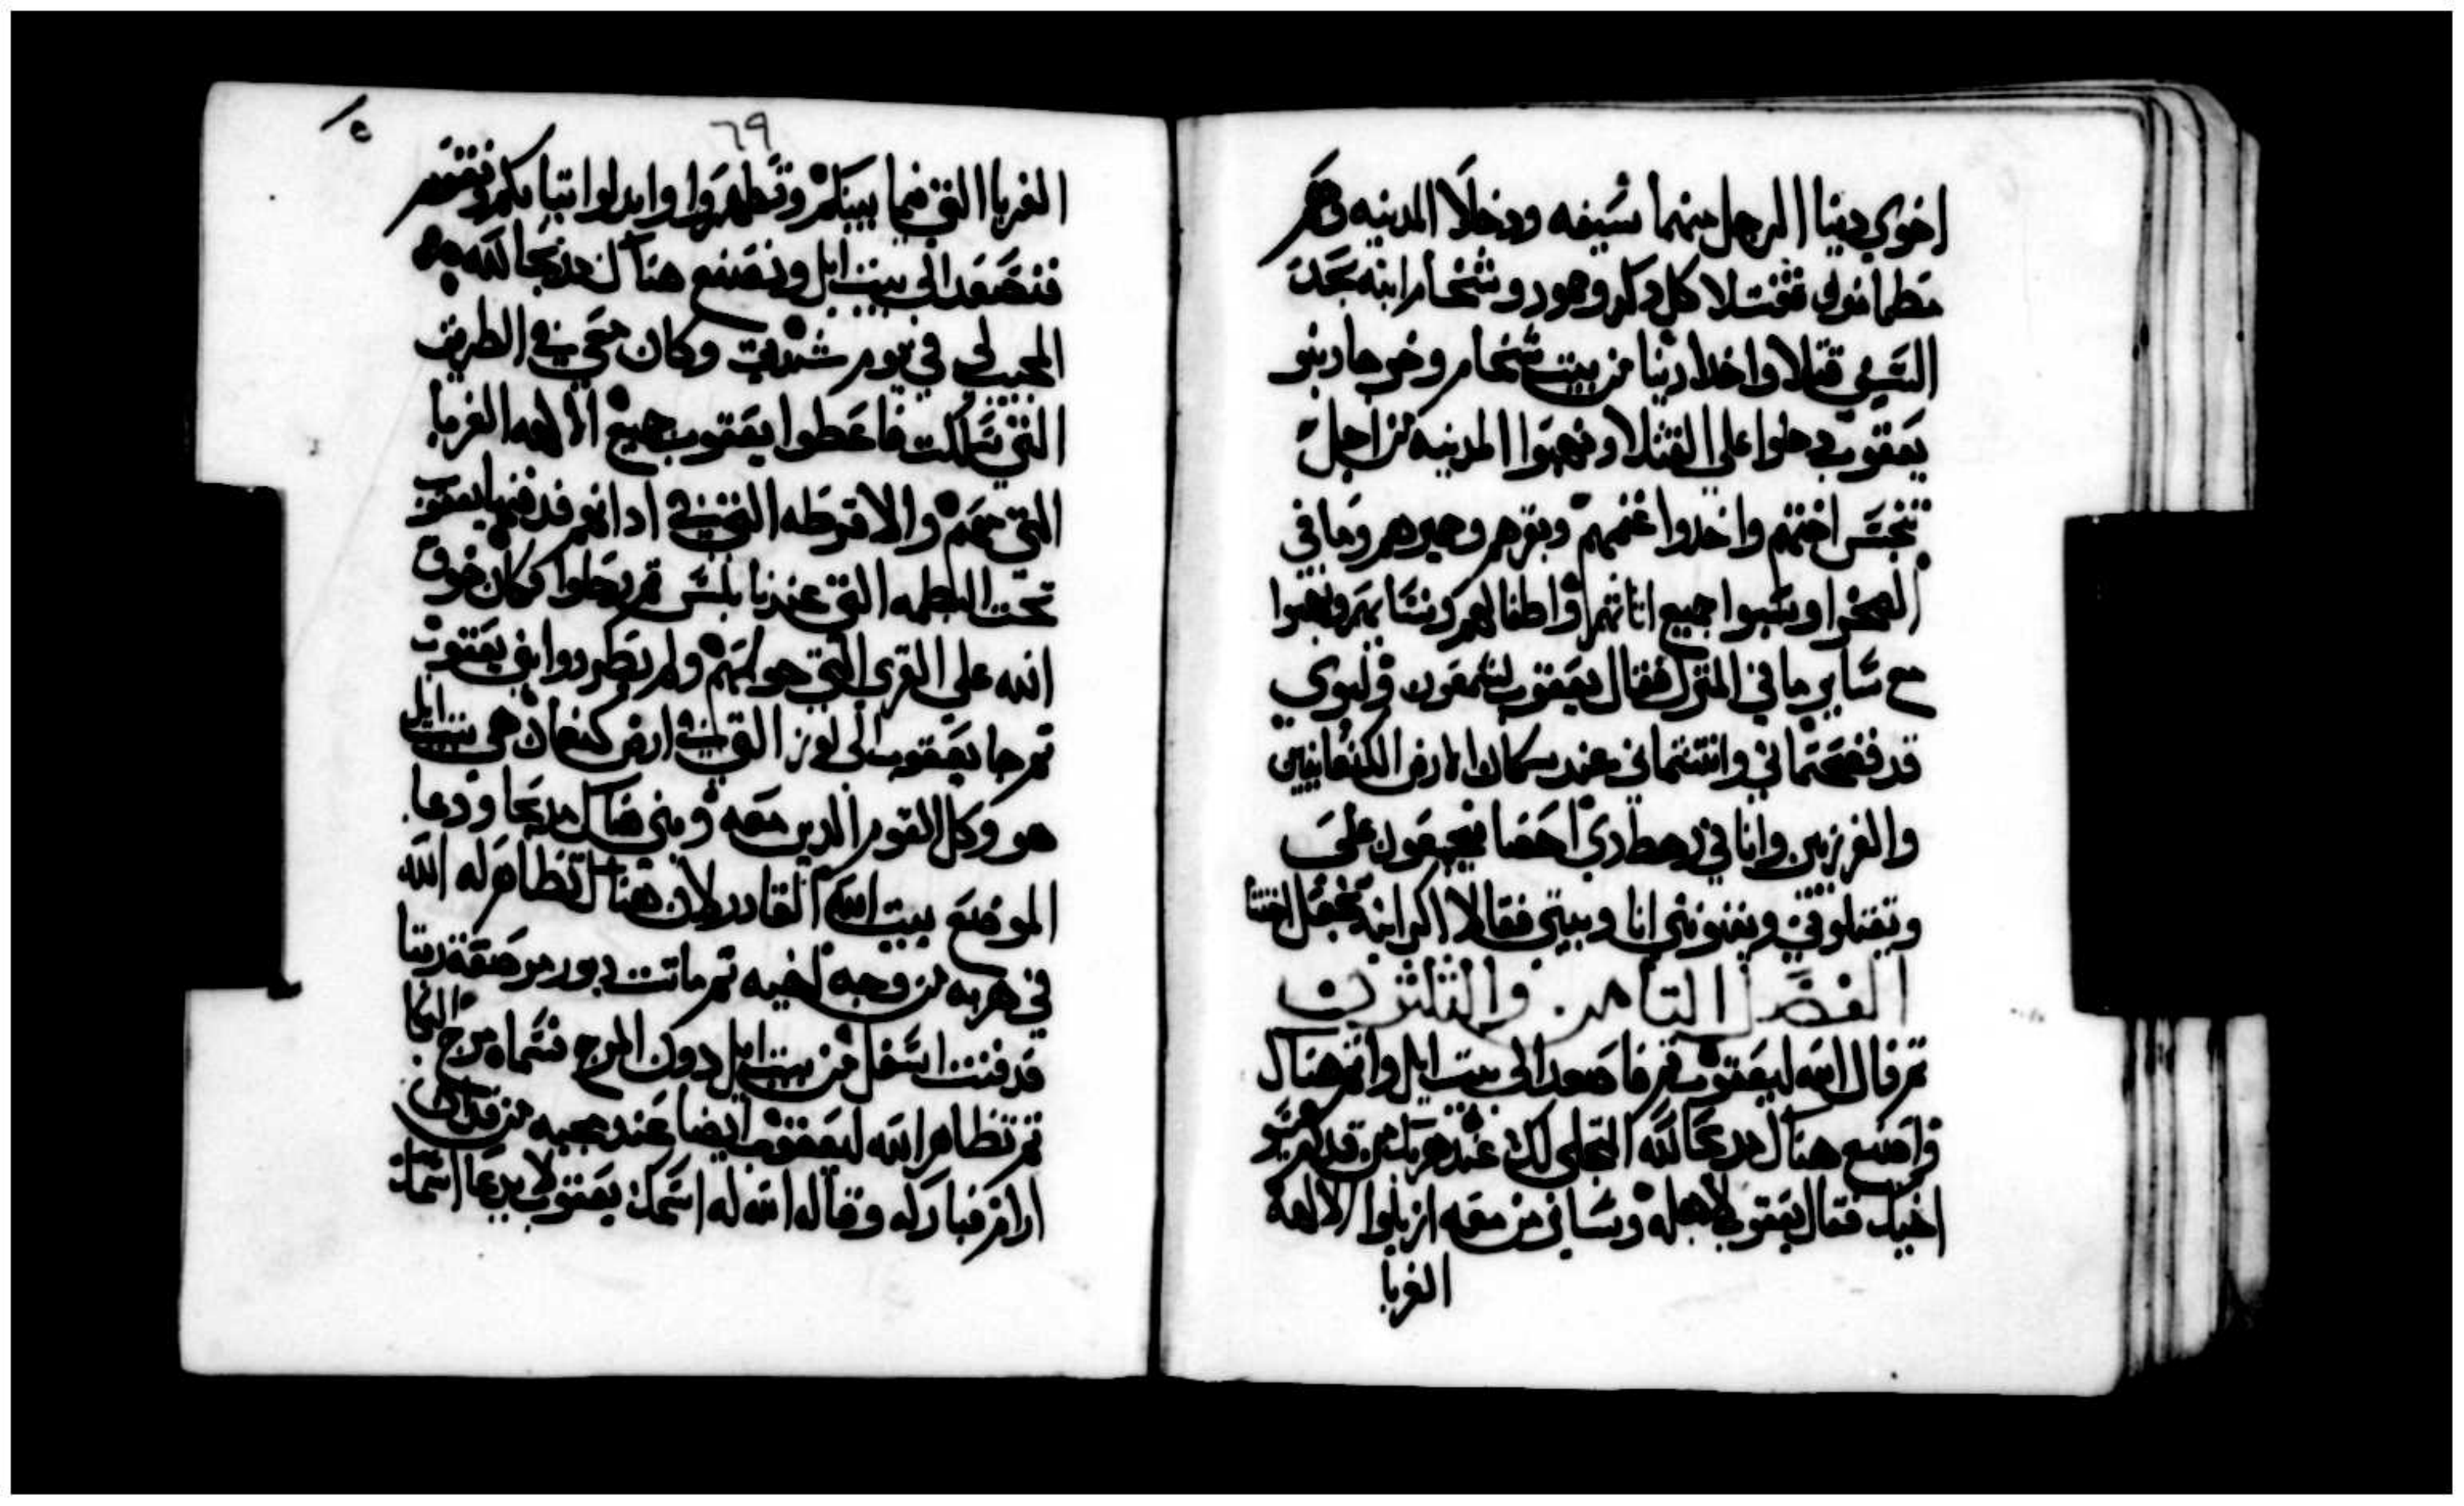 اخوي دينا الرجل منهما سيفه ودخلا المدينه وهم
مطمانون فقتلا كل ذكر وحمور وشخام ابنه بحد
السيف قتلا واخدا دينا من بيت شخام وخرجا وبنو
يعقوب دخلوا على القتلا ونهبوا المدينه من اجل
تنجس اختهم واخدوا غنمهم وبقرهم وحميرهم وما في
الصحرا وسبوا جميع اثاثهم واطفالهم ونسايهم ونهبوا
مع ساير ما في المنزل فقال يعقوب لشمعون ولوي
قد فضحتماني وانتنتماني عند سكان الارض الكنعانيين
والفرزين وانا في رهط دي احصا فيجتمعون علي
ويقتلوني ويفنوني انا وبيتي فقالا اكزانيه تجعل اختنا
الفصل الثامن والثلثون
تم قال الله ليعقوب قم فاصعد الى بيت ايل واقم هناك
واصنع هناك مدبحا لله المتجلي لك عند هربك من قدام عيسو
اخيك فقال يعقوب لاهله وساير من معه ازيلوا الالهة
الغربا
٦٩
الغربا التي فيما بينكم وتطهروا وابدلوا ثيابكم ونقوم
فنصعد الى بيت ايل ونصنع هناك مدبحا لله
المجيب لي في يوم شدتي وكان معي في الطريق
التي سلكت فاعطوا يعقوب جميع الالهه الغربا
التي معهم والاقرطه التي في ادانهم فدفنها يعقوب
تحت البطمه التي عند نابلس تم رحلوا فكان خوف
الله على القرى التي حولهم ولم يطردوا بني يعقوب
تم جا يعقوب الى لوز التي في ارض كنعان هي بيت ايل
هو وكل القوم الدين معه وبنى هناك مدبحا ودعا
الموضع بيت الله القادر لان هناك تظاهر له الله
في هربه من وجه اخيه تم ماتت دبورا مرضعة ربقا
فدفنت اسفل من بيت ايل دون المرج فسماه مرج البكا
تم تظاهر الله ليعقوب ايضا عند مجيه من فدان
ارام فباركه وقال الله له اسمك يعقوب لا يدعا اسمك